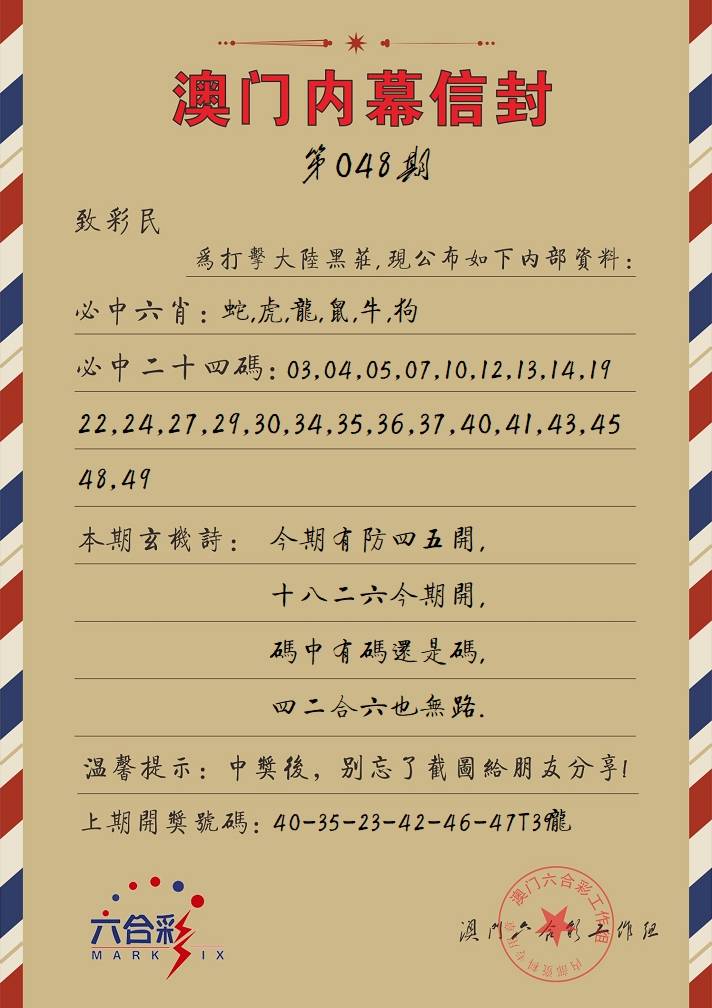 澳门内幕信封
第048期
致彩民
爲打擊大陸黑莊,現公布如下内部資料:
必中六肖: 蛇,虎,龍,鼠,牛,狗
必中二十四碼: 03,04,05,07,10,12,13,14,19
22,24,27,29,30,34,35,36,37,40,41,43,45
48,49
本期玄機詩: 今期有防四五開,
十八二六今期開,
碼中有碼還是碼,
四二合六也無路.
温馨提示: 中獎後, 别忘了截圖給朋友分享!
上期開獎號碼: 40-35-23-42-46-47T39龍
六合彩
MARK SIX
澳门六合彩工作组
澳门六合彩工作组
内部资料专用章